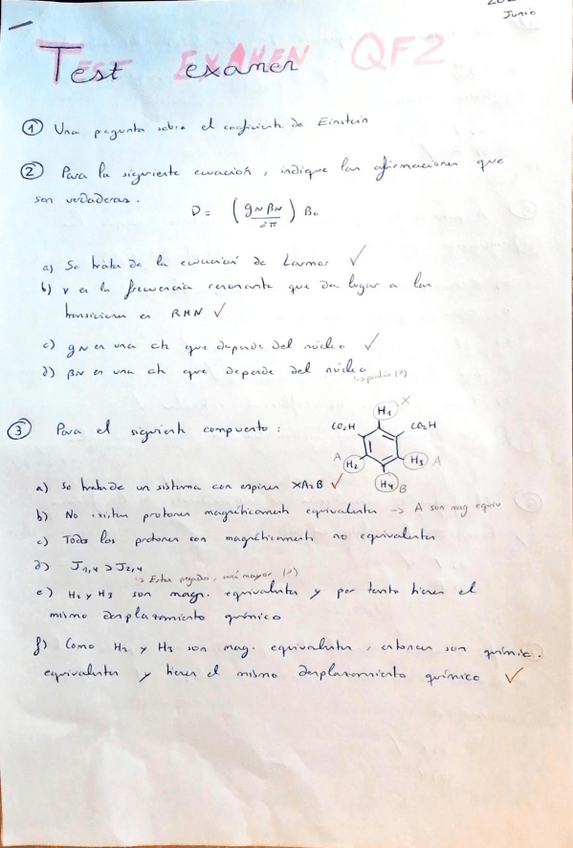 Junio
TEST EXAMEN QF2
Test examen
① Una pegunta sobre el coeficiente de Einstein
② Para la siguiente ecuación, indique las afirmaciones que
son verdaderas.
ν = (gN βN / 2π) B₀
a) Se trata de la ecuación de Larmor ✓
b) ν es la frecuencia resonante que da lugar a las
transiciones en RMN ✓
c) gN es una cte que depende del núcleo ✓
d) βN es una cte que depende del núcleo
↳ protón (?)
③ Para el siguiente compuesto:
H₁ X
CO₂H CO₂H
A H₂ H₃ A
H₄ B
a) Se trata de un sistema con espines XA₂B ✓
b) No existen protones magnéticamente equivalentes -> A son mag equiv
c) Todos los protones son magnéticamente no equivalentes
d) J₁,₄ > J₂,₄
↳ Estan pegados, será mayor (?)
e) H₂ y H₃ son magn. equivalentes y por tanto tienen el
mismo desplazamiento químico
f) Como H₂ y H₃ son mag. equivalentes, entonces son químic.
equivalentes y tienen el mismo desplazamiento químico ✓